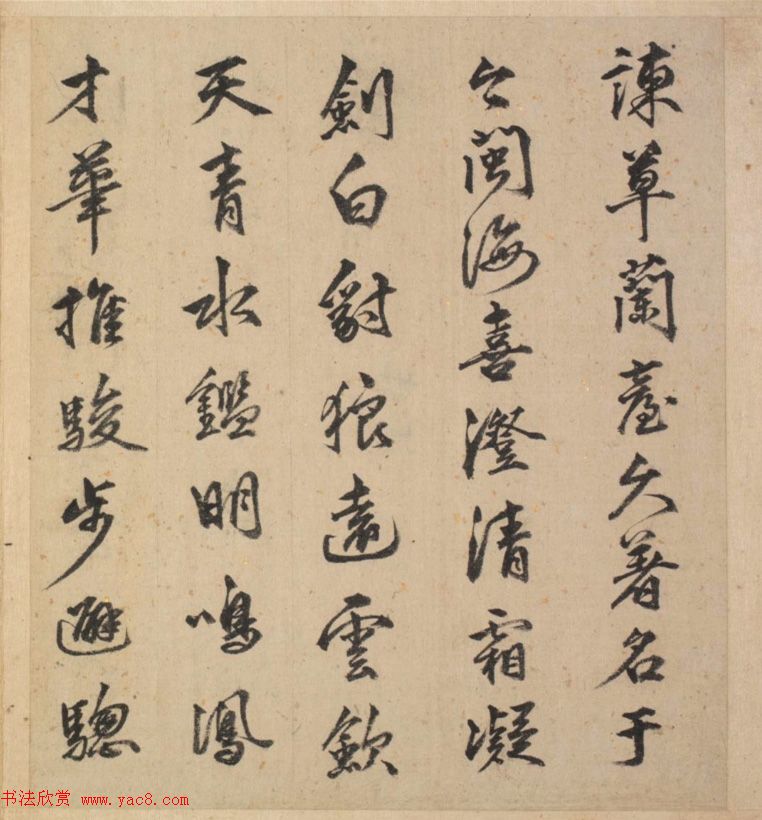 諫草蘭臺久著名于
今閩海喜澄清霜凝
劍白豺狼遠雲斂
天青水鑑明鳴鳳
才華推駿步避驄
书法欣赏 www.yac8.com